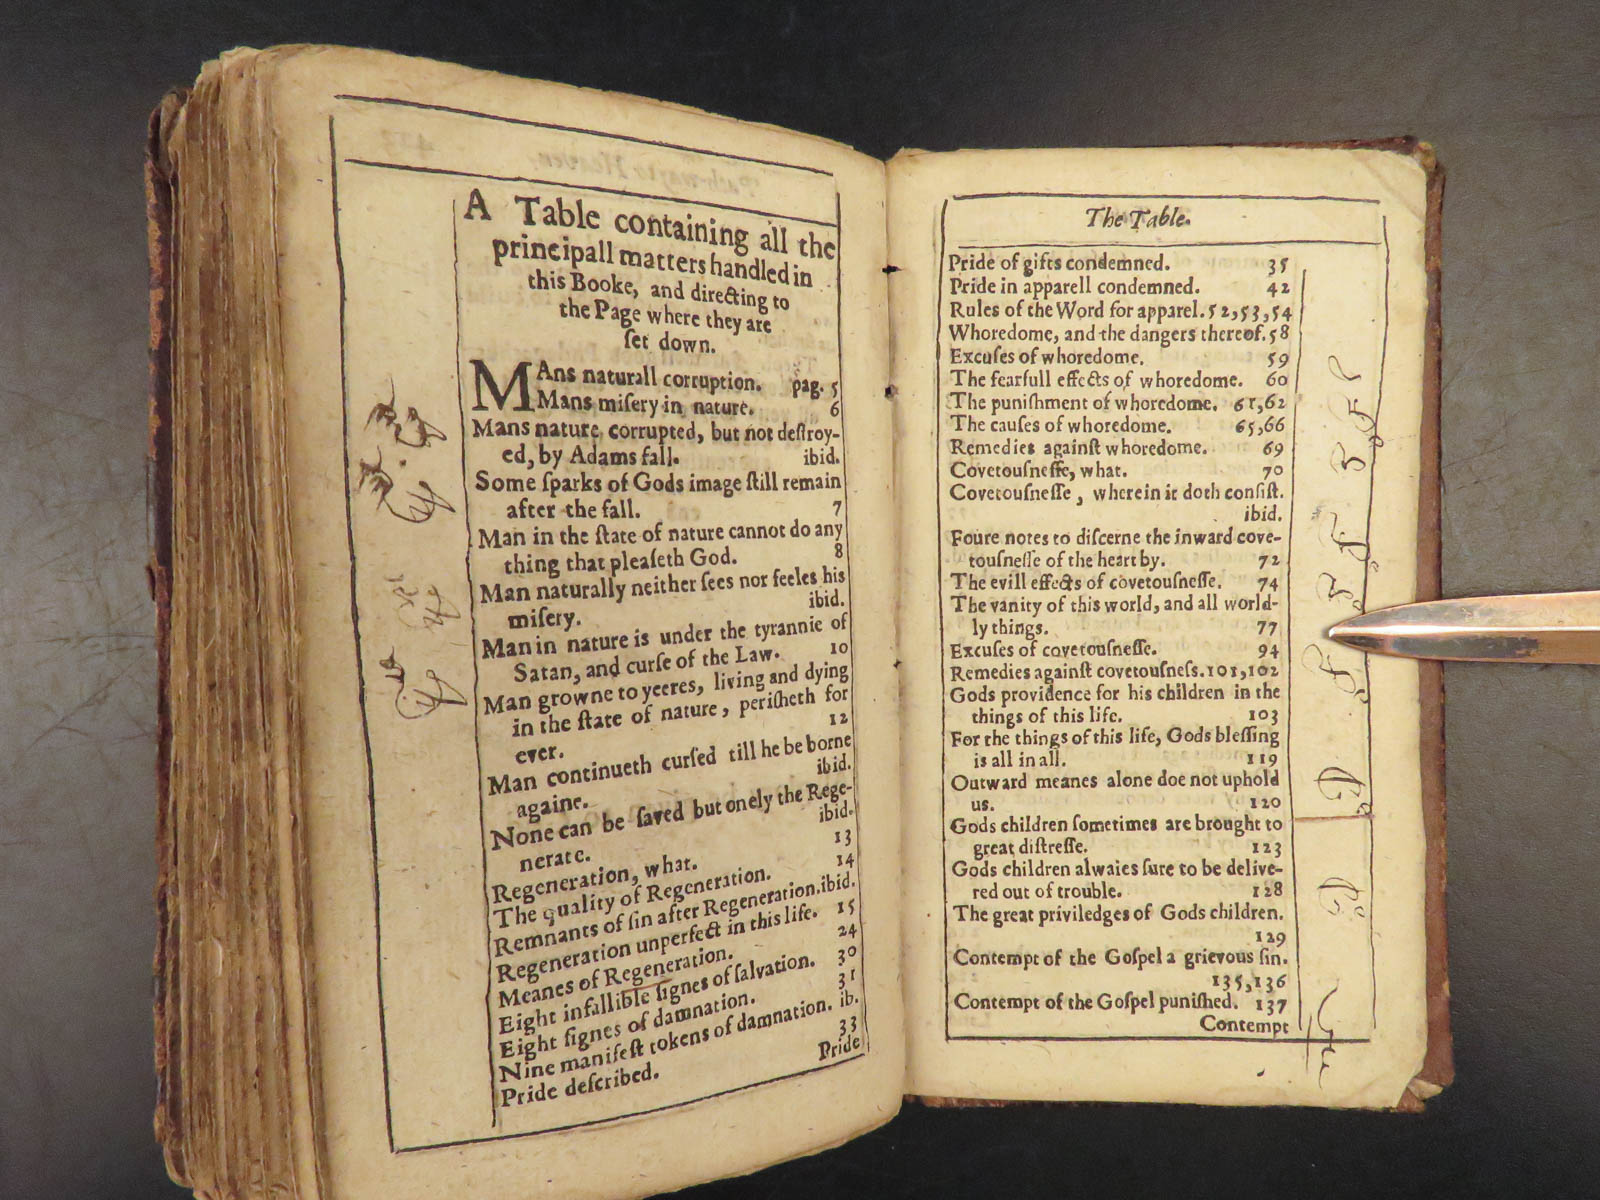 A Table containing all the
principall matters handled in
this Booke, and directing to
the Page where they are
ſet down.
MAns naturall corruption. pag. 5
Mans miſery in nature. 6
Mans nature corrupted, but not deſtroy-
ed, by Adams fall. ibid.
Some ſparks of Gods image ſtill remain
after the fall. 7
Man in the ſtate of nature cannot do any
thing that pleaſeth God. 8
Man naturally neither ſees nor feeles his
miſery. ibid.
Man in nature is under the tyrannie of
Satan, and curſe of the Law. 10
Man growne to yeeres, living and dying
in the ſtate of nature, periſheth for
ever. 12
Man continueth curſed till he be borne
againe. ibid.
None can be ſaved but onely the Rege-
nerate. ibid.
Regeneration, what. 13
The quality of Regeneration. 14
Remnants of ſin after Regeneration. ibid.
Regeneration unperfect in this life. 15
Meanes of Regeneration. 24
Eight infallible ſignes of ſalvation. 30
Eight ſignes of damnation. 31
Nine manifeſt tokens of damnation. ib.
Pride deſcribed. 33
Pride
The Table.
Pride of gifts condemned. 35
Pride in apparell condemned. 42
Rules of the Word for apparel. 52,53,54
Whoredome, and the dangers thereof. 58
Excuſes of whoredome. 59
The fearfull effects of whoredome. 60
The puniſhment of whoredome. 61,62
The cauſes of whoredome. 65,66
Remedies againſt whoredome. 69
Covetouſneſſe, what. 70
Covetouſneſſe, wherein it doth conſiſt.
ibid.
Foure notes to diſcerne the inward cove-
touſneſſe of the heart by. 72
The evill effects of covetouſneſſe. 74
The vanity of this world, and all world-
ly things. 77
Excuſes of covetouſneſſe. 94
Remedies againſt covetouſneſs. 101,102
Gods providence for his children in the
things of this life. 103
For the things of this life, Gods bleſſing
is all in all. 119
Outward meanes alone doe not uphold
us. 120
Gods children ſometimes are brought to
great diſtreſſe. 123
Gods children alwaies ſure to be delive-
red out of trouble. 128
The great priviledges of Gods children.
129
Contempt of the Goſpel a grievous ſin.
135,136
Contempt of the Goſpel puniſhed. 137
Contempt